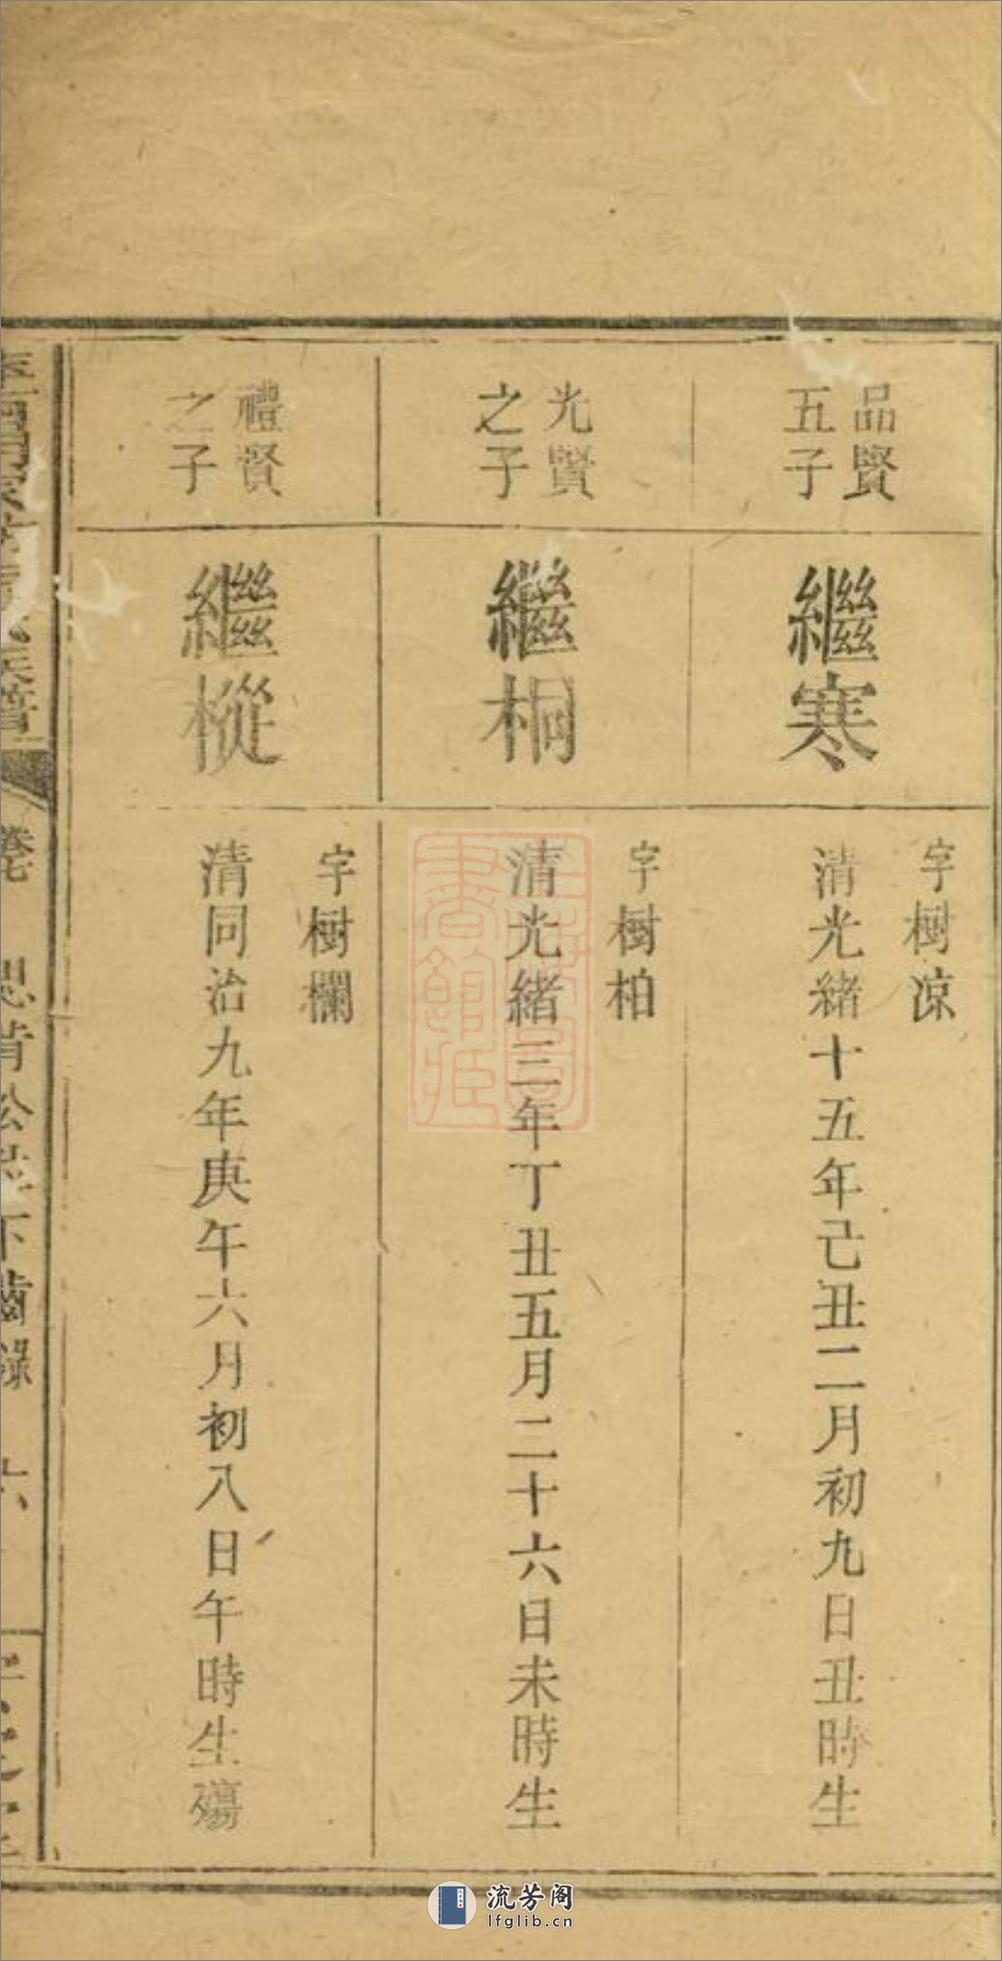 品賢
五子
繼寒
字樹凉
清光緒十五年己丑二月初九日丑時生
光賢
之子
繼桐
字樹柏
清光緒三年丁丑五月二十六日未時生
禮賢
之子
繼樅
字樹欄
清同治九年庚午六月初八日午時生殤
下齒錄
六
流芳阁
lfglib.cn